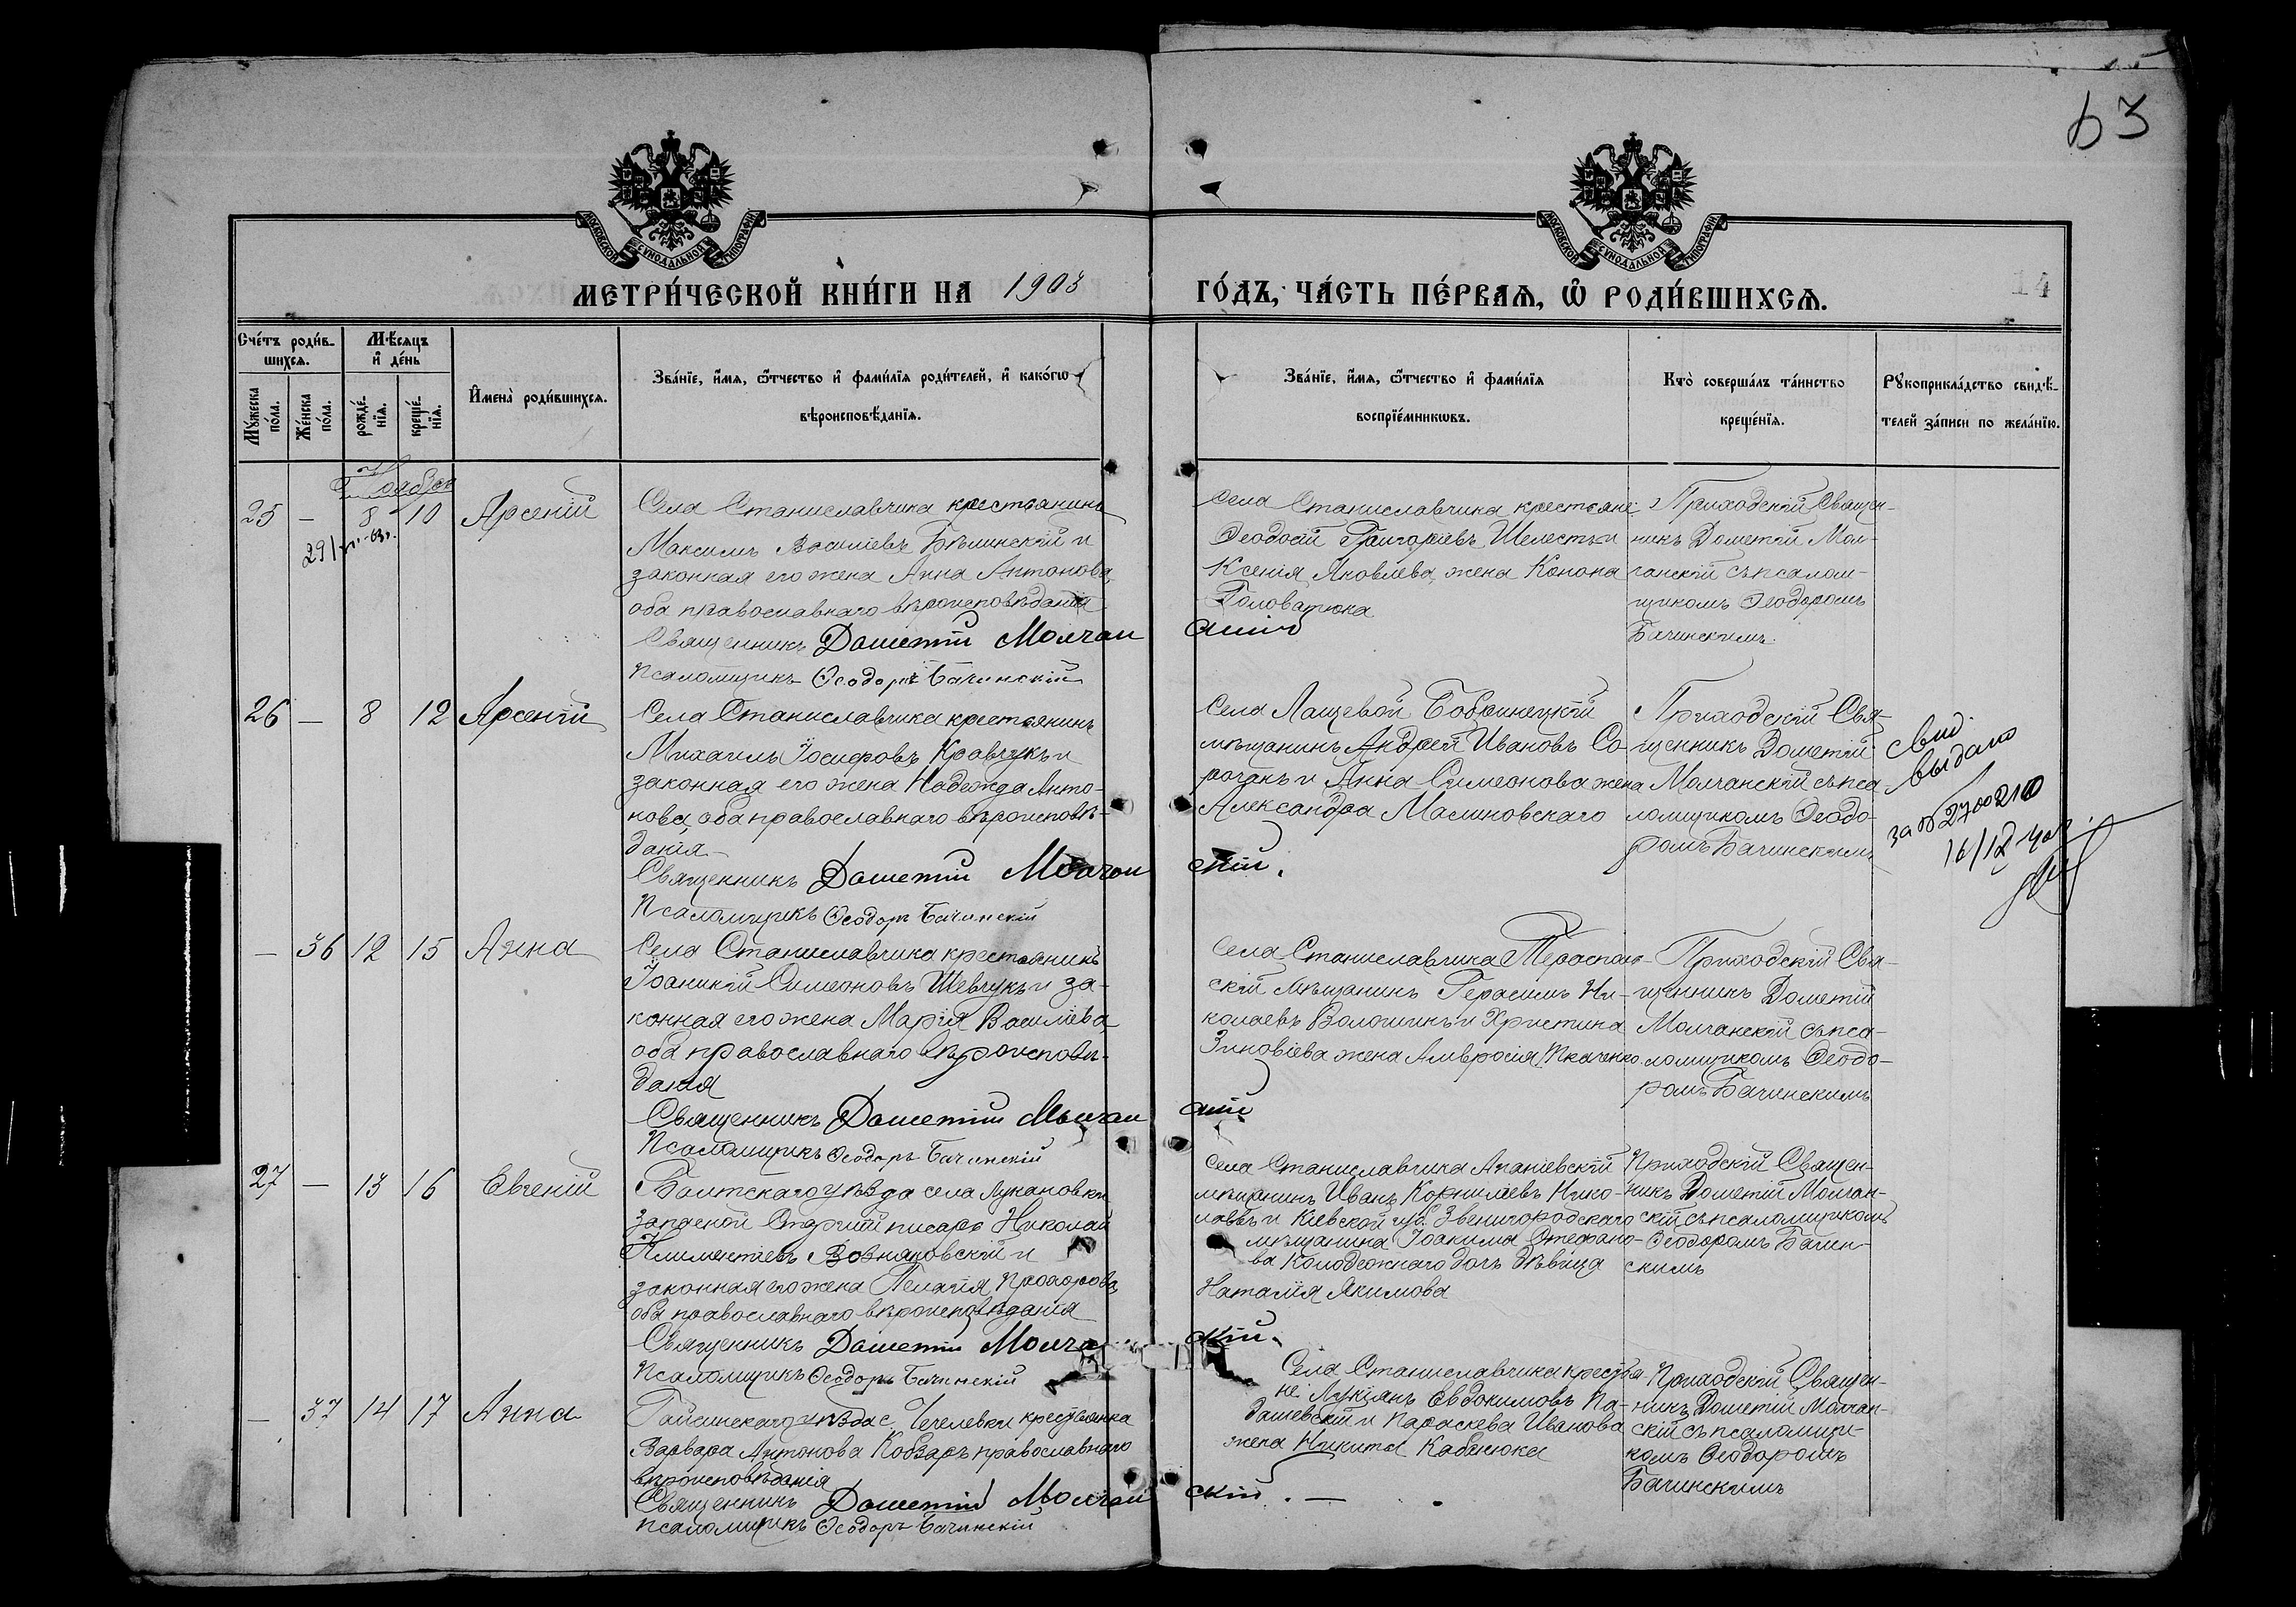 63
МОСКОВСКОЙ СУНОДАЛЬНОЙ ТИПОГРАФІИ
МОСКОВСКОЙ СУНОДАЛЬНОЙ ТИПОГРАФІИ
МЕТРИ́ЧЕСКОЙ КНИ́ГИ НА 1903 ГО́ДЪ, ЧА́СТЬ ПЕ́РВАѦ, Ѡ РОДИ́ВШИХСѦ.
14
Сче́тъ роди́в-
шихся.
Мѣ́сяцъ
и҆ де́нь
Мꙋ́жеска
по́ла.
Же́нска
по́ла.
рожде́-
нїя.
креще́-
нїя.
И҆мена̀ роди́вшихся.
Зва́нїе, и҆́мя, ѻ҆́тчество и҆ фами́лїя роди́телей, и҆ како́гѡ
вѣроисповѣ́данїя.
Зва́нїе, и҆́мя, ѻ҆́тчество и҆ фами́лїя
воспрїе́мникѡвъ.
Кто̀ соверша́лъ та́инство
креще́нїя.
Рꙋкоприкла́дство свидѣ́-
телей за́писи по жела́нїю.
Ноябрь
25 — 8 10 Арсеній
Села Станиславчика крестьянинъ
Максимъ Василіевъ Бѣлинскій и
законная его жена Анна Антонова,
оба православнаго вѣроисповѣданія
Священникъ Дометій Молчан
Псаломщикъ Ѳеодоръ Бачинскій
Села Станиславчика крестьяне
Ѳеодосій Григоріевъ Шелестъ и
Ксенія Яковлева жена Конона
Головатюка
скій
Приходскій Священ-
никъ Дометій Мол-
чанскій съ псалом-
щикомъ Ѳеодоромъ
Бачинскимъ.
26 — 8 12 Арсеній
Села Станиславчика крестьянинъ
Михаилъ Іосифовъ Кравчукъ и
законная его жена Надежда Анто-
нова, оба православнаго вѣроисповѣ-
данія
Священникъ Дометій Молчан
Псаломщикъ Ѳеодоръ Бачинскій
Села Лащевой Бобринецкій
мѣщанинъ Андрей Ивановъ Со-
рочанъ и Анна Симеонова жена
Александра Малиновскаго
скій.
Приходскій Свя-
щенникъ Дометій
Молчанскій съ пса-
ломщикомъ Ѳеодо-
ромъ Бачинскимъ
Свид
выдано
16/12
— 36 12 15 Анна
Села Станиславчика крестьянинъ
Іоаникій Симеоновъ Шевчукъ и за-
конная его жена Марія Василіева
оба православнаго вѣроисповѣ-
данія
Священникъ Дометій Молчан
Псаломщикъ Ѳеодоръ Бачинскій
Села Станиславчика Тераспол-
скій мѣщанинъ Герасимъ Ни-
колаевъ Волошинъ и Христина
Зиновіева жена Амвросія Ткаченко
скій
Приходскій Свя-
щенникъ Дометій
Молчанскій съ пса-
ломщикомъ Ѳеодо-
ромъ Бачинскимъ
27 — 13 16 Евгеній
Балтскаго уѣзда села Лукановки
запасной Старшій писарь Николай
Климентіевъ Вовнаковскій и
законная его жена Пелагія Прохорова
оба православнаго вѣроисповѣданія
Священникъ Дометій Молчан
Псаломщикъ Ѳеодоръ Бачинскій
Села Станиславчика Ананіевскій
мѣщанинъ Иванъ Корниліевъ Нико-
лаевъ и Кіевской губ. Звенигородскаго
мѣщанина Іоакима Стефано-
ва Колодежнаго дочь дѣвица
Наталія Якимова
скій.
Приходскій Священ-
никъ Дометій Молчан-
скій съ псаломщикомъ
Ѳеодоромъ Бачин-
скимъ
— 37 14 17 Анна
Гайсинскаго уѣзда с. Чечелевки крестьянка
Варвара Антонова Кобзаръ православнаго
вѣроисповѣданія
Священникъ Дометій Молчан
Псаломщикъ Ѳеодоръ Бачинскій
Села Станиславчика крестья-
не Лукіянъ Евдокимовъ Па-
дашевскій и Параскева Иванова
жена Никиты Кабанюка
скій. —
Приходскій Священ-
никъ Дометій Молчан-
скій съ псаломщи-
комъ Ѳеодоромъ
Бачинскимъ